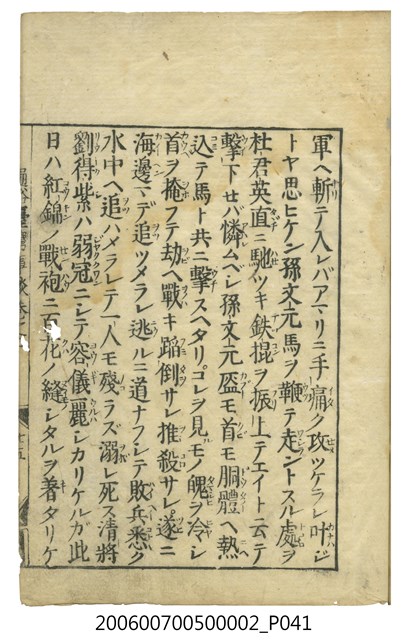 軍ヘ斬テ入レバアマリニ手痛ク攻ツケラレ叶ジ
トヤ思ヒケン孫文元馬ヲ鞭テ走ントスル處ヲ
杜君英直ニ馳ツキ鉄掍ヲ振上テエイト云テ
撃下セバ憐ムベシ孫文元盔モ首モ胴體ヘ熱
込テ馬ト共ニ撃スヘタリコレヲ見モノ魄ヲ冷シ
首ヲ掩フテ劫ヘ戰キ蹈倒サレ推殺サレ遂ニ
海邊マデ追ツメラレ逃ルニ道ナフシテ敗兵悉ク
水中ヘ追ハメラレテ一人モ殘ラズ溺レ死ス清將
劉得紫ハ弱冠ニシテ容儀麗シカリケルガ此
日ハ紅錦ノ戰袍ニ百花ノ縫シタルヲ著タリケ
十五
200600700500002_P041